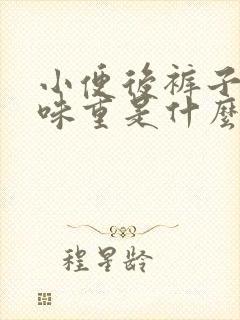 小便後裤子
味重是什麼
程星龄